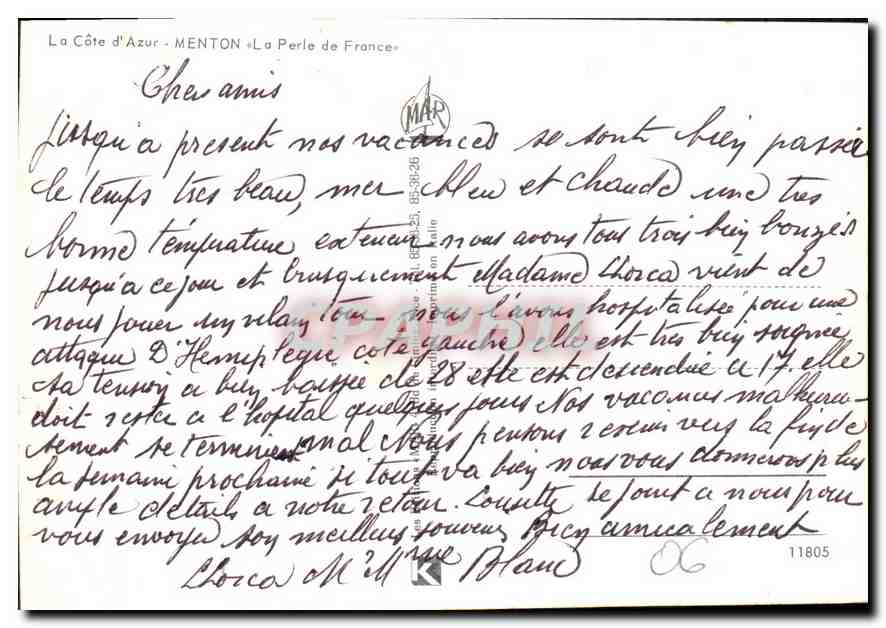 La Côte d'Azur - MENTON «La Perle de France»
Chers amis
MAR
jusqu'a present nos vacances se sont bien passée
le temps tres beau, mer bleu et chaude une tres
bonne température exterieur nous avons tous trois bien bougés
jusqu'a ce jour et brusquement Madame Llorca vient de
nous jouer un vilain tour nous l'avons hospitalisée pour une
attaque D'Hemiplegie coté gauche elle est tres bien soignée
sa tension a bien baissée de 28 elle est descendue a 17. elle
doit rester a l'hopital quelques jours Nos vacances malheureu-
sement se terminent mal Nous pensons revenir vers la fin de
la semaine prochaine si tout va bien nous vous donnerons plus
ample details a notre retour. Lousette se joint a nous pour
vous envoyer son meilleurs souvenir Bien amicalement
Llorca Mr Mme Blanc
06
11805
K
CPARAMA
85-38-26
Imprimé en Italie